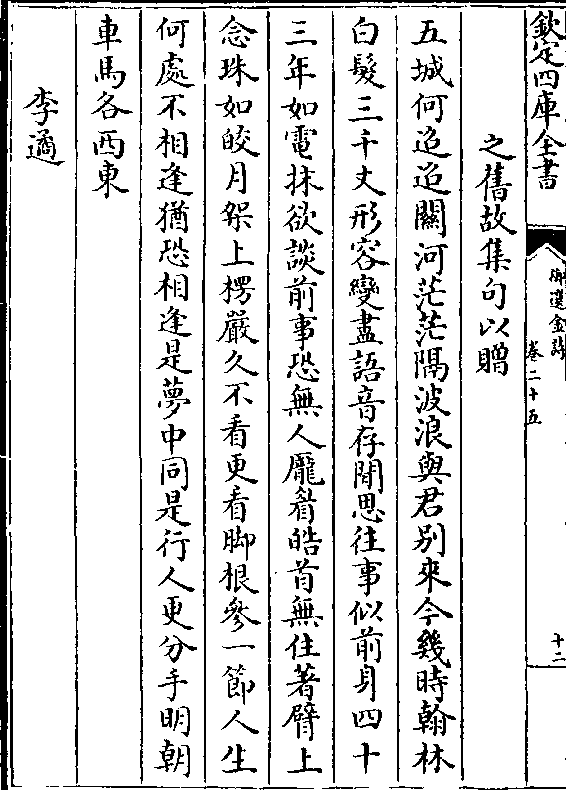 欽定四庫全書
御選金詩
卷二十五
十二
之舊故集句以贈
五城何迢迢關河茫茫隔波浪與君别來今幾時翰林
白髮三千丈形容變盡語音存閒思往事似前身四十
三年如電抹欲談前事恐無人龎眉皓首無住著臂上
念珠如皎月架上楞嚴久不看更看脚根參一節人生
何處不相逢猶恐相逢是夢中同是行人更分手明朝
車馬各西東
李遹